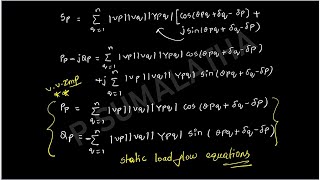 Sp = n Σ q=1 |Vp||Vq||Ypq| [cos(θpq+δq-δp) +
j sin(θpq+δq-δp)
Pp-jQp = n Σ q=1 |Vp||Vq||Ypq| cos(θpq+δq-δp)
+j n Σ q=1 |Vp||Vq||Ypq| sin(θpq+δq-δp)
V.V.Imp
**
Pp = n Σ q=1 |Vp||Vq||Ypq| cos(θpq+δq-δp)
Qp = - n Σ q=1 |Vp||Vq||Ypq| sin(θpq+δq-δp)
static load flow equations
P.SUMALATHA